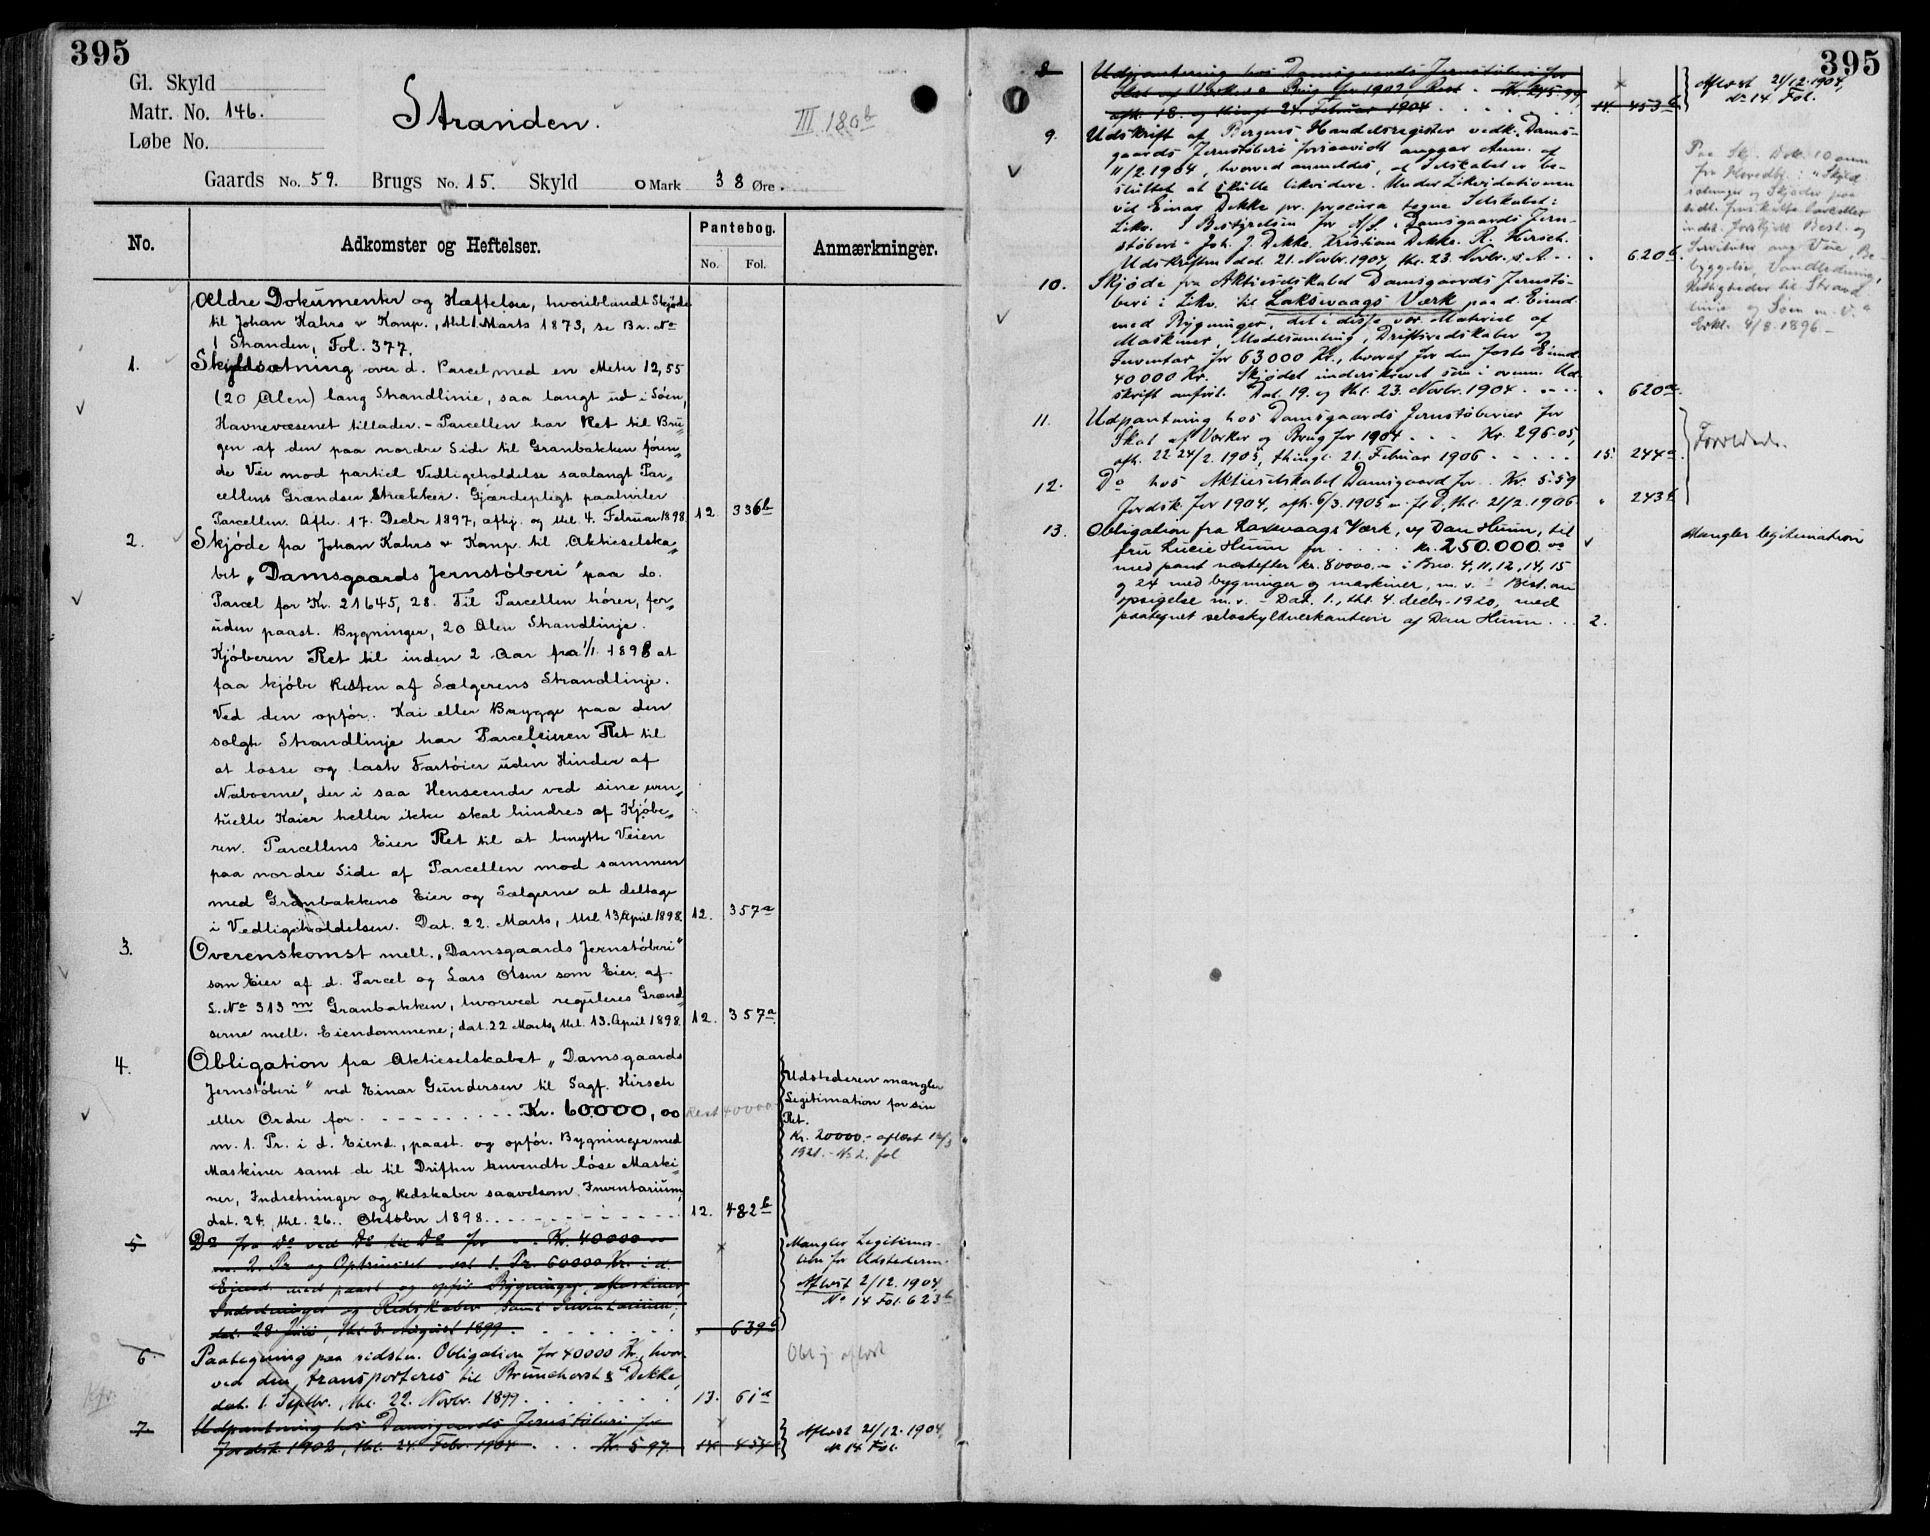 395
Gl. Skyld
Matr. No. 146.
Løbe No.
Stranden.
III 180b
Gaards No. 59. Brugs No. 15. Skyld 0 Mark 38 Øre.
No.
Adkomster og Heftelser.
Pantebog.
No. Fol.
Anmærkninger.
Ældre Dokumenter og Hæftelser, hvoriblandt Skjøde
til Johan Kahrs & Komp., thl. 1. Marts 1873, se Br. No
1 Stranden, Fol. 377.
1. Skyldsætning over d. Parcel med en Meter 12,55
(20 Alen) lang Strandlinie, saa langt ud i Søen,
Havnevæsenet tillader. – Parcellen har Ret til Bru„
gen af den paa nordre Side til Granbakken føren„
de Vei mod partiel Vedligeholdelse saalangt Par„
cellens Grændser strækker. Gjærdepligt paahviler
Parcellen. Afh. 17. Decbr 1897, afhj. og thl. 4. Februar 1898 12. 336b
2. Skjøde fra Johan Kahrs & Komp. til Aktieselska„
bet „Damsgaards Jernstøberi" paa do.
Parcel for Kr. 21645,28. Til Parcellen hører, for„
uden paast. Bygninger, 20 Alen Strandlinje.
Kjøberen Ret til inden 2 Aar fra 1/1 1898 at
faa kjøbe Resten af Sælgerens Strandlinje.
Ved den opfør. Kai eller Brygge paa den
solgte Strandlinje har Parceleieren Ret til
at losse og laste Fartøier uden Hinder af
Naboerne, der i saa Henseende ved sine even„
tuelle Kaier heller ikke skal hindres af Kjøbe„
ren. Parcellens Eier Ret til at benytte Veien
paa nordre Side af Parcellen mod sammen
med Granbakkens Eier og Sælgerne at deltage
i Vedligeholdelsen. Dat. 22. Marts, thl. 13. April 1898. 12. 357a
3. Overenskomst mell. „Damsgaards Jernstøberi"
som Eier af d. Parcel og Lars Olsen som Eier af
L. No 313 m Granbakken, hvorved reguleres Grænd„
serne mell. Eiendommene; dat. 22 Marts, thl. 13. April 1898. 12. 357a
4. Obligation fra Aktieselskabet „Damsgaards
Jernstøberi" ved Einar Gundersen til Sagf. Hirsch
eller Ordre for - - - - Kr. 60000,00 Rest 40000
m. 1. Pr. i d. Eiend., paast. og opfør. Bygninger med
Maskiner samt de til Driften anvendte løse Maski„
ner, Indretninger og Redskaber saavelsom Inventarium,
dat. 24. thl. 26. Oktober 1898. - - - - 12. 482b
Udstederen mangler
Legitimation for sin
Ret.
Kr. 20000.- aflæst
1921. - No 2. fol
5 Do fra Do ved Do til Do for - - Kr. 40000
m. 2. Pr. og Oprinsret ved 1. Pr. 60000 Kr. i d.
Eiend. med paast og opfør Bygninger, Maskiner,
Indretninger og Redskaber samt Inventarium,
dat. 28. Juli, thl. 3. August 1899. - - - - " 639b
Mangler Legitima-
tion for Udstederen.
Aflæst 2/12. 1904,
No 14 Fol. 623b
6. Paategning paa sidstn. Obligation for 40000 Kr., hvor-
ved den transporteres til Brunchorst & Dekke,
dat. 1. Septbr., thl. 22. Novbr. 1899. - - - - 13. 61a
Obl. j. aflæst
7. Udpantning hos Damsgaards Jernstøberi for
Jordsk. 1902, thl. 24. Febr. 1904 . . . Kr. 5.97. 14 454
Aflæst 21/12. 1904,
No 14 Fol.
395
8 Udpantning hos Damsgaards Jernstøberi for
Skat af Verker & Brug for 1902, Rest - Kr. 245.99,
afh. 18. og thingl. 24. Februar 1904 . . . . 14. 453b
Aflæst 21/12. 1904,
No 14 Fol.
9. Udskrift af Bergens Handelsregister vedk. Dams-
gaards Jernstøberi forsaavidt angaar Anm. af
11/2. 1904, hvorved anmeldes, at Selskabet er be-
sluttet at skulle likvidere. Under Likvidationen
vil Einar Dekke pr. procura tegne Selskabet i
Likv. I Bestyrelsen for A/S. „Damsgaards Jern-
støberi" Joh. J. Dekke. Kristian Dekke. R. Hersch.
Udskriften dat. 21. Novbr. 1904, thl. 23. Novbr. s. A. - - " 620b.
10. Skjøde fra Aktieselskabet Damsgaards Jernstø-
beri i Likv. til Laksevaags Værk paa d. Eiend.
med Bygninger, det i disse vær. Materiel af
Maskiner, Modelsamling, Driftsredskaber og
Inventar for 63000 Kr., hvoraf for den faste Eiend.
40000 Kr. Skjødet underskrevet som i ovenn. Ud-
skrift anført. Dat. 19. og thl. 23. Novbr. 1904 - - - - " 620a.
11. Udpantning hos Damsgaards Jernstøberier for
Skat af Verker og Brug for 1904 - - - Kr. 296.05,
afh. 22. 24/2. 1905, thingl. 21. Februar 1906 - - - - 15. 244a
12. Do hos Aktieselskabet Damsgaard for - Kr. 5.59
Jordsk. for 1904, afh. 6/3. 1905 m. fl. D., thl. 21/2. 1906 " 243b
Forældede.
13. Obligation fra Laxevaags Værk, v/ Dan Huun, til
fru Lucie Huun for . . . . kr. 250.000.00
med pant næstefter kr. 80000.- i Bno. 4, 11, 12, 14, 15
og 24 med bygninger og maskiner, m. v. - Best. om
opsigelse m. v. - Dat. 1., thl. 4. decbr. 1920, med
paategnet selvskyldnerkaution af Dan Huun . . . 2.
Mangler legitimation
Paa Skj. Dok. 10 anm.
fra Hovedbl.: "Skyld
sætninger og Skjøder paa
indh. forskjell. Best. og
Servitutter ang. Veie, Be-
byggelse, Vandledning,
Rettigheder til Strand
linie og Søen m. v."
Erkl. 4/8. 1896.-